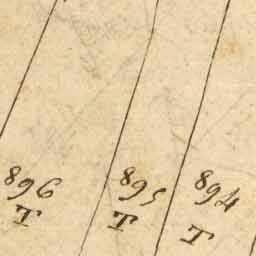 896 895 894
T T T